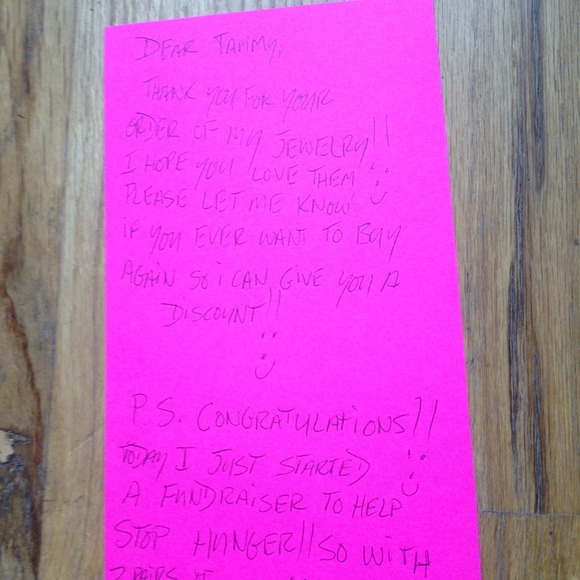 DEAR TAMMY,
THANK YOU FOR YOUR
ORDER OF MY JEWELRY!!
I HOPE YOU LOVE THEM :)
PLEASE LET ME KNOW
IF YOU EVER WANT TO BUY
AGAIN SO I CAN GIVE YOU A
DISCOUNT!!
:)
P.S. CONGRATULATIONS!!
TODAY I JUST STARTED :)
A FUNDRAISER TO HELP
STOP HUNGER!! SO WITH
2 PAIRS